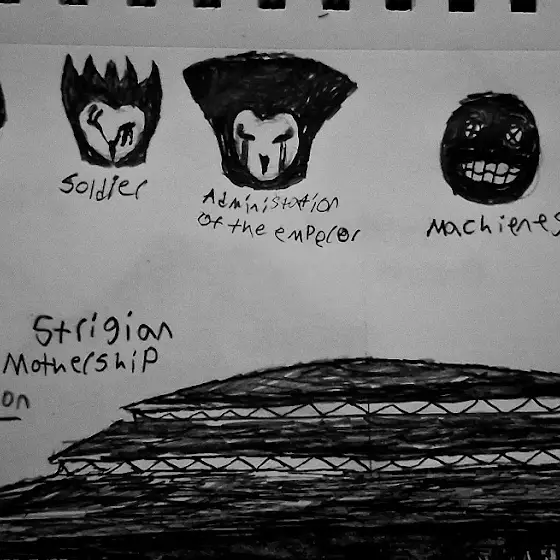 Soldier
Administation
of the emperor
Machienes
Strigian
Mothership
on